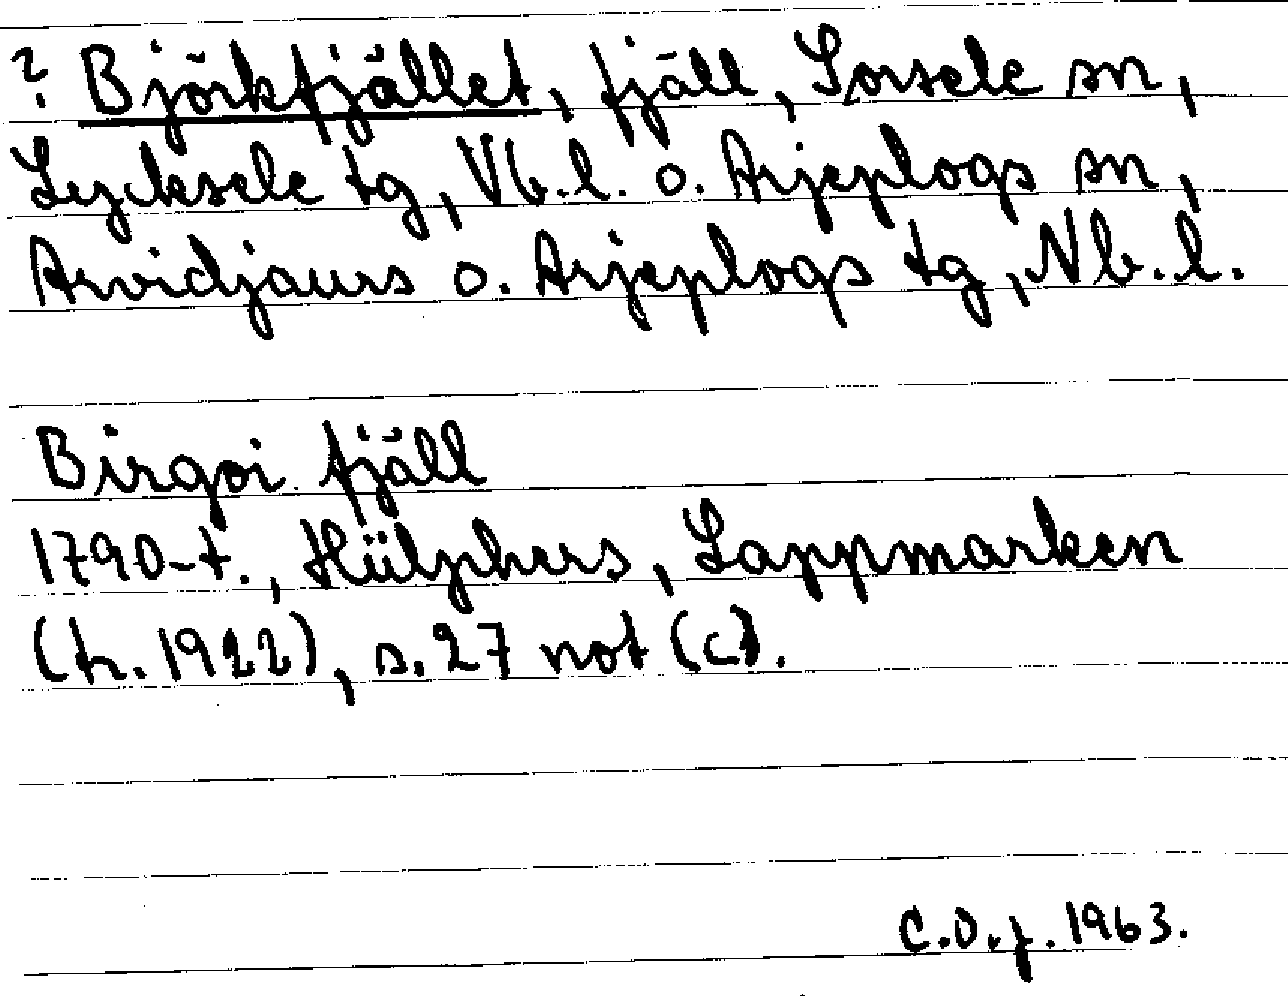 ? Björkfjället, fjäll, Sorsele sn,
Lycksele tg, Vb.l. o. Arjeplogs sn,
Arvidjaurs o. Arjeplogs tg, Nb.l.
Birgoi fjäll
1790-t., Hülphers, Lappmarken
(tr. 1922), s. 27 not (c).
C.O.f. 1963.